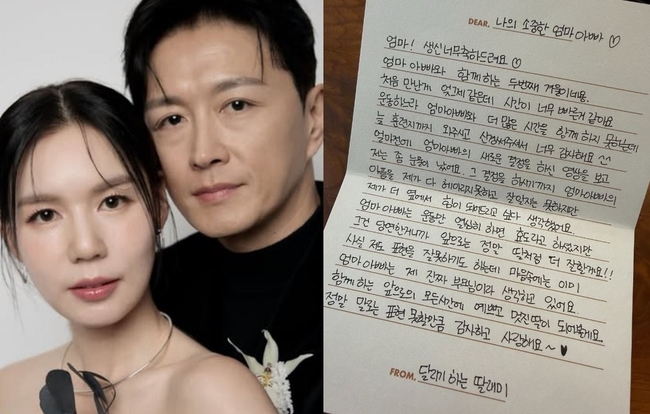 DEAR. 나의 소중한 엄마아빠 ♡
엄마! 생신너무축하드려요 ♡
엄마아빠와 함께하는 두번째 겨울이네용.
처음 만난게 엊그제같은데 시간이 너무 빠른거 같아요
운동하느라 엄마아빠와 더 많은 시간을 함께 하지 못하는데
늘 훈련지까지 와주고 신경써주셔서 너무 감사해요 ^^
얼마전에 엄마아빠의 새로운 결정을 하신 영상을 보고
저는 좀 눈물이 났어요. 그 결정을 하시기까지 엄마아빠의
아픔을 제가 다 헤아리지못하고 알지는 못하지만
제가 더 옆에서 힘이 되어드리고 싶다 생각했어요.
엄마 아빠는 운동만 열심히 하면 효도라고 하셨지만
그건 당연한거니까 앞으로는 정말 딸처럼 더 잘할게요!!
사실 저도 표현을 잘못하기도 하는데 마음속에는 이미
엄마 아빠는 제 진짜 부모님이라 생각하고 있어요.
함께 하는 앞으로의 모든시간에 예쁘고 멋진딸이 되어볼게요.
정말 말로는 표현 못할만큼 감사하고 사랑해요~ ♥
FROM. 달리기 하는 딸래미